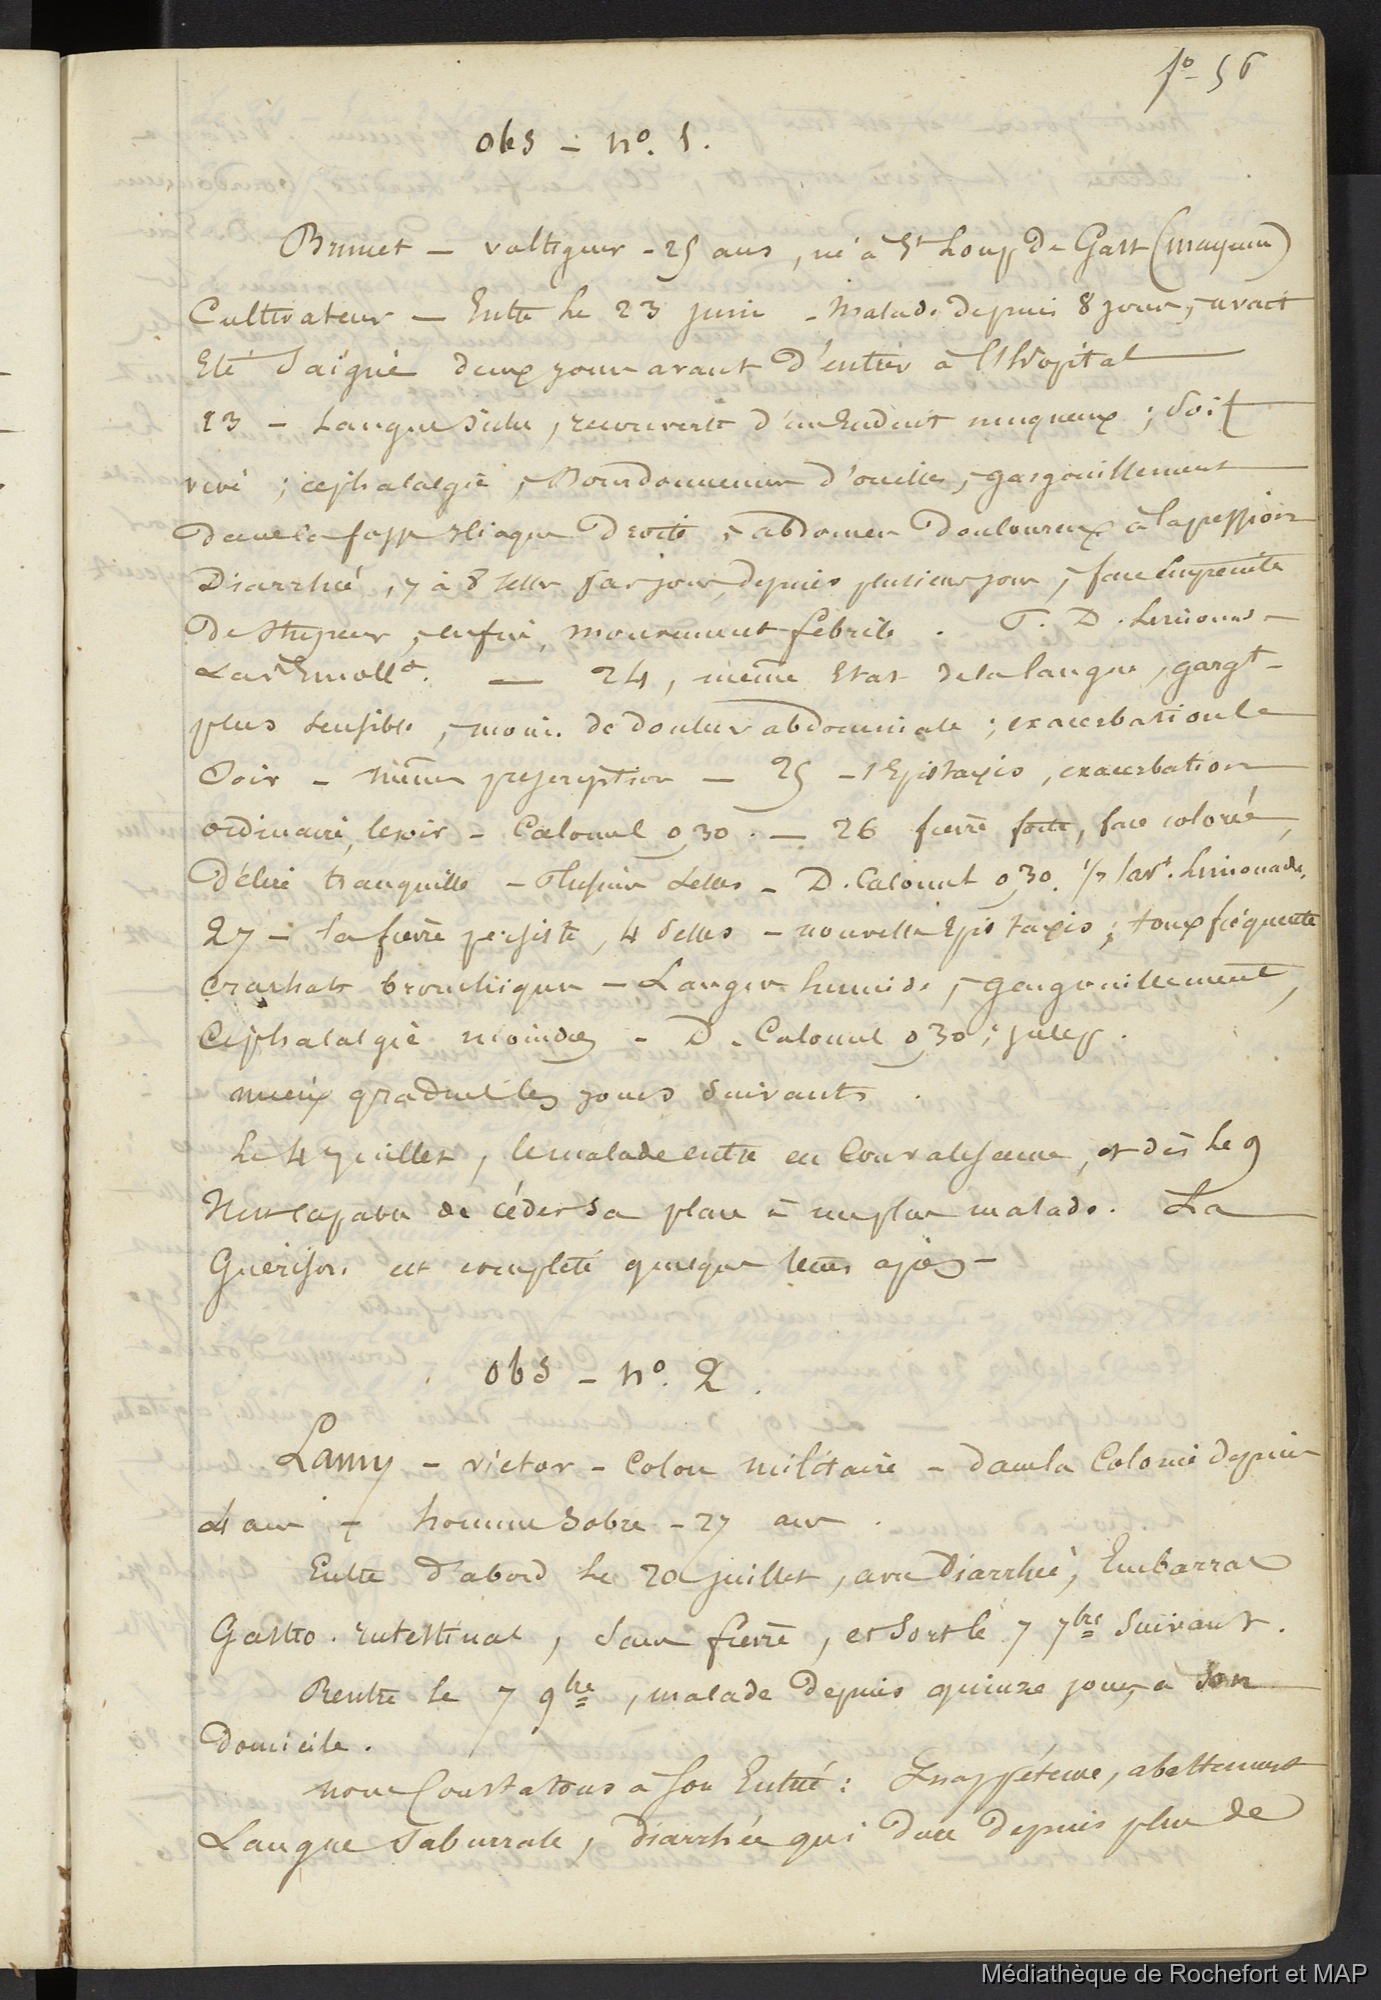 fo 56
obs - no. 1.
Brunet - voltigeur - 25 ans, né à St Loup de Gast (mayenne)
Cultivateur - Entre le 23 juin - malade depuis 8 jours, avait
Eté Saigné deux jours avant d'entrer à l'hopital
23 - Langue Sèche, recouverte d'un Enduit muqueux ; Soif
vive ; cephalalgie, Bourdonnement d'oreilles, gargouillement
dans la fosse Iliaque Droite, abdomen Douloureux à la pression
Diarrhée, 7 à 8 selles par jour, depuis plusieurs jours, face Empreinte
De Stupeur, enfin, mouvement febrile. T. D. Limonade
Lavt Emollt. - 24, même Etat de la langue, gargt
plus sensible, moins de douleur abdominale ; exacerbation le
Soir - même prescription - 25 - 1 Epistaxis, exacerbation
ordinaire, le soir - Calomel 0,30. - 26 fievre forte, face colorée,
Délire tranquille - Plusieurs selles - D. Calomel 0,30. 1/2 lavt. Limonade.
27 - la fièvre persiste, 4 Selles - nouvelle Epistaxis ; toux fréquente
Crachats bronchiques - Langue humide, gargouillement,
Cephalalgie moindre - D. Calomel 0,30 ; julep.
mieux graduel les jours Suivants.
Le 4 juillet, le malade entre en Convalescence, et dès le 9
Il est capable de céder Sa place à un plus malade. La
Guérison est complète quelque tems après -
obs - no. 2.
Lamy - victor - Colon militaire - dans la Colonie depuis
4 ans - homme Sobre - 27 ans.
Entre d'abord le 20 juillet, avec Diarrhée, Embarras
Gastro-intestinal, Sans fièvre, et Sort le 7 7bre Suivant.
Rentre le 7 9bre, malade depuis quinze jours, à Son
Domicile.
nous Constatons à Son Entrée : Inappétence, abattement
Langue Saburrale, diarrhée qui dure depuis plus de
Médiathèque de Rochefort et MAP